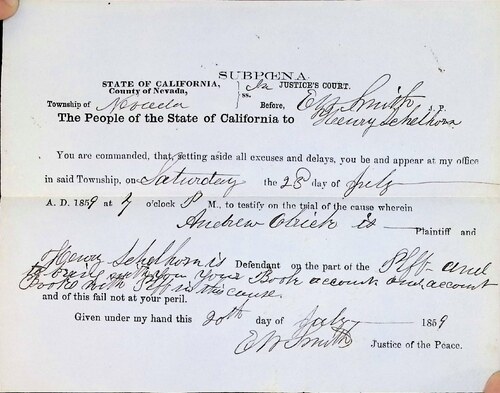 SUBPŒNA.
STATE OF CALIFORNIA,
County of Nevada,
ss.
In JUSTICE'S COURT.
Township of Nevada
Before, E W Smith J. P.
The People of the State of California to Henry Schelhorn
You are commanded, that, setting aside all excuses and delays, you be and appear at my office
in said Township, on Saturday the 23d day of July
A. D. 1859 at 7 o'clock P M., to testify on the trial of the cause wherein
Andrew is Plaintiff and
Henry Schelhorn is Defendant on the part of the Plff and
to bring with you Your Book account and account
Books with Plff in this cause.
and of this fail not at your peril.
Given under my hand this 20th day of July 1859
E W Smith Justice of the Peace.